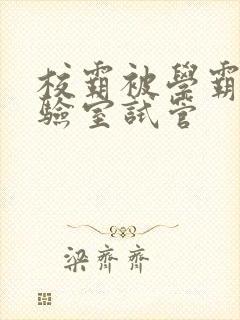 校霸被學霸
驗室試管
梁齊齊